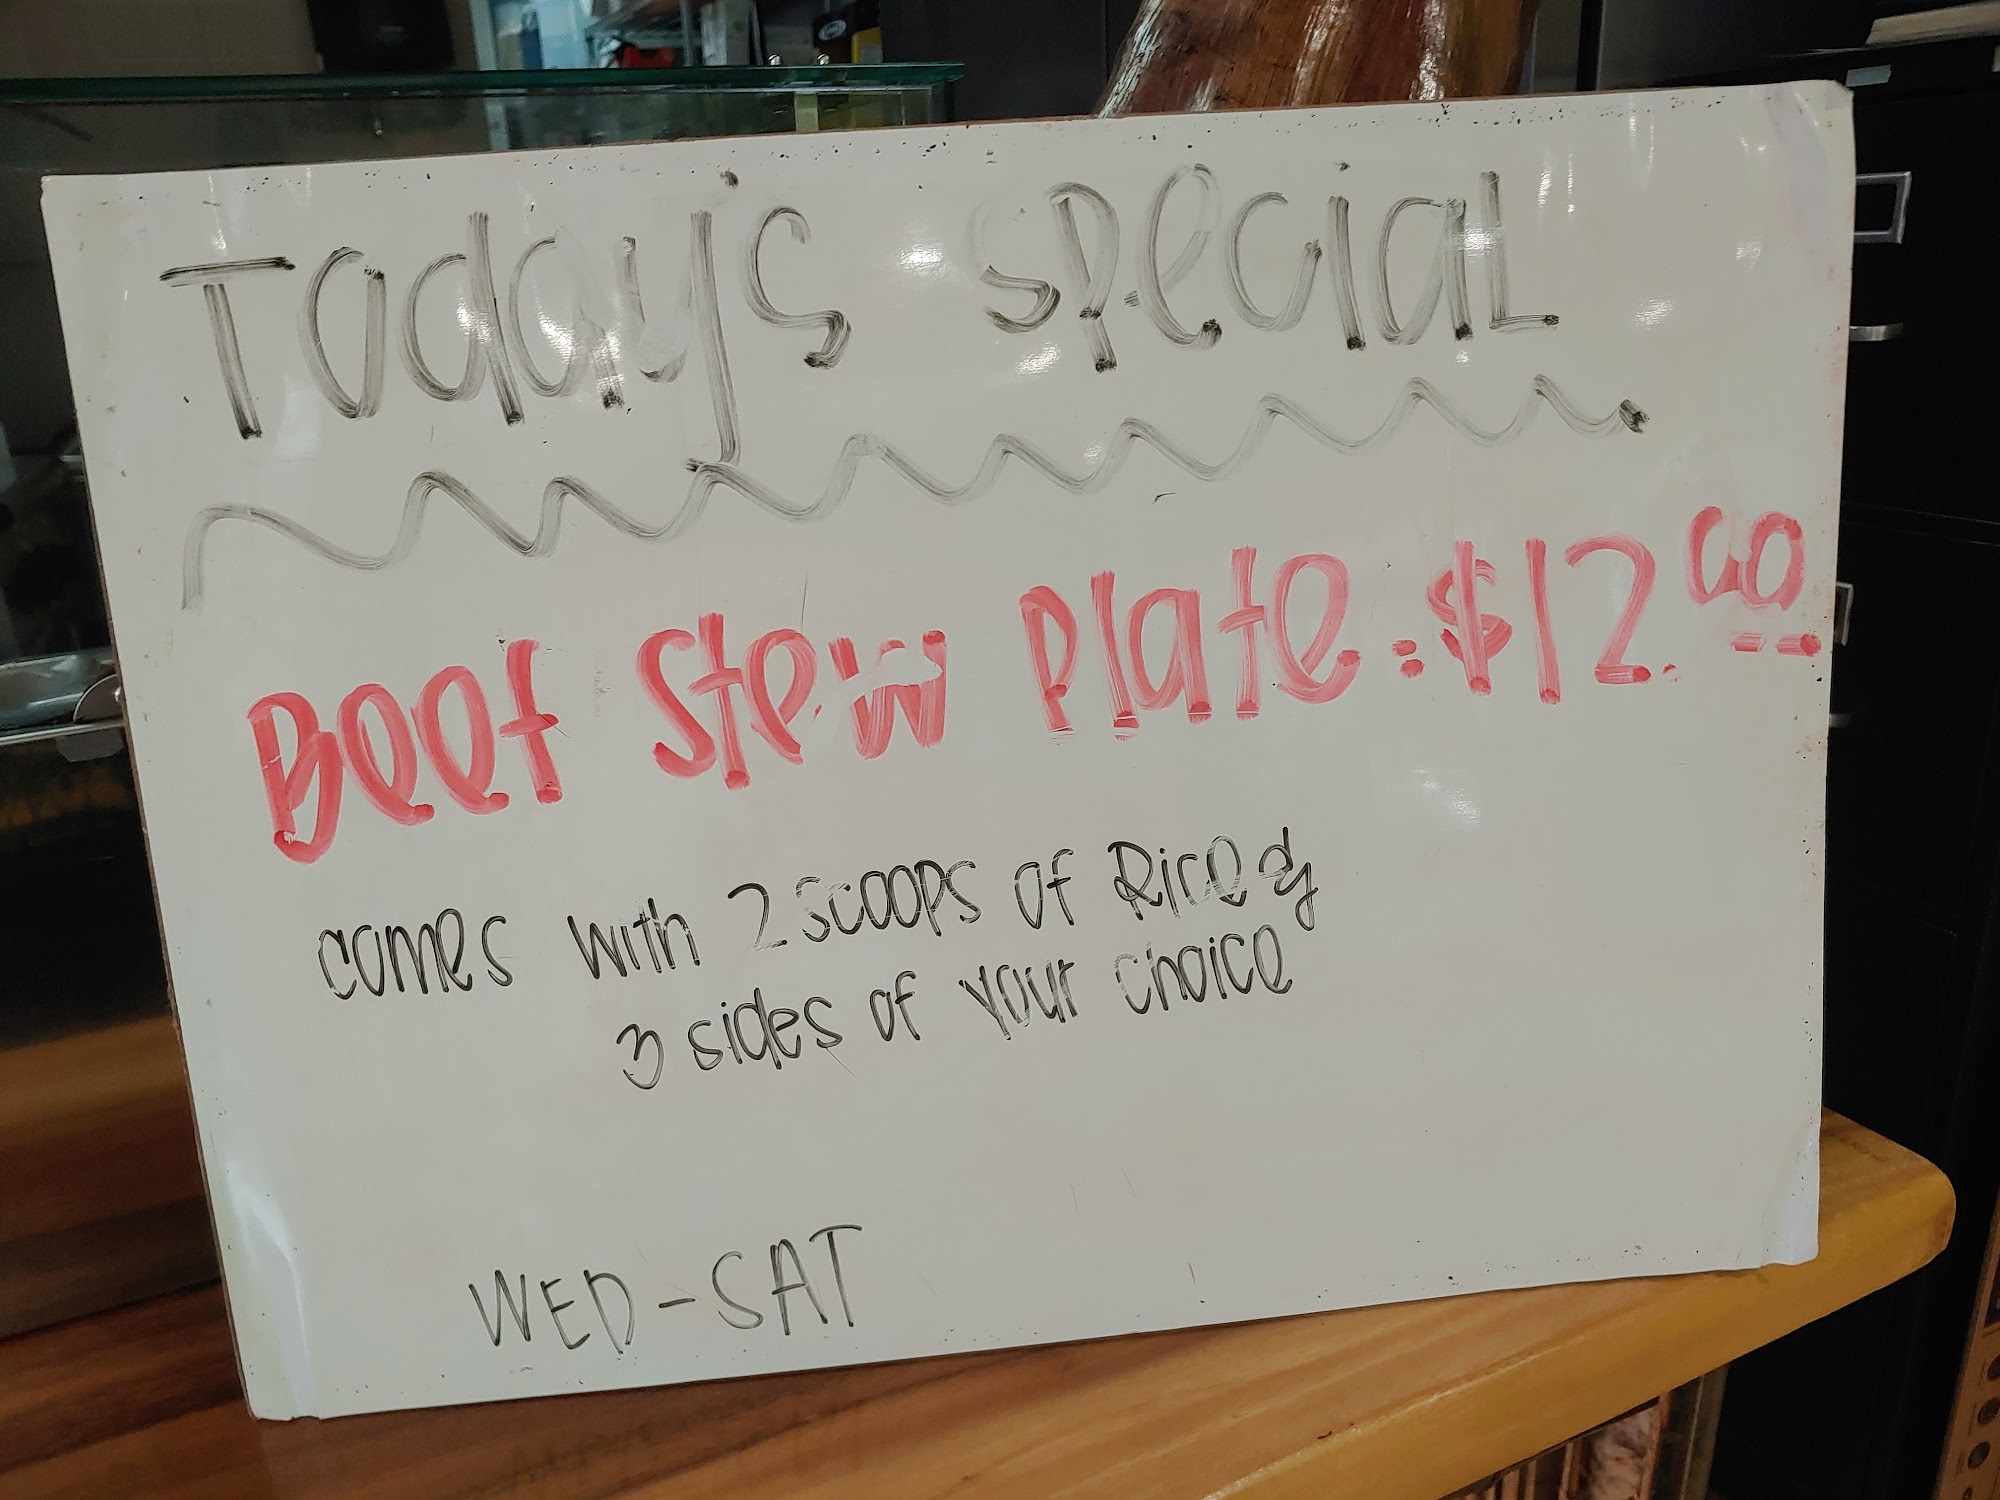 Today's special
Beef Stew Plate: $12.00
comes with 2 scoops of Rice &
3 sides of your choice
WED-SAT